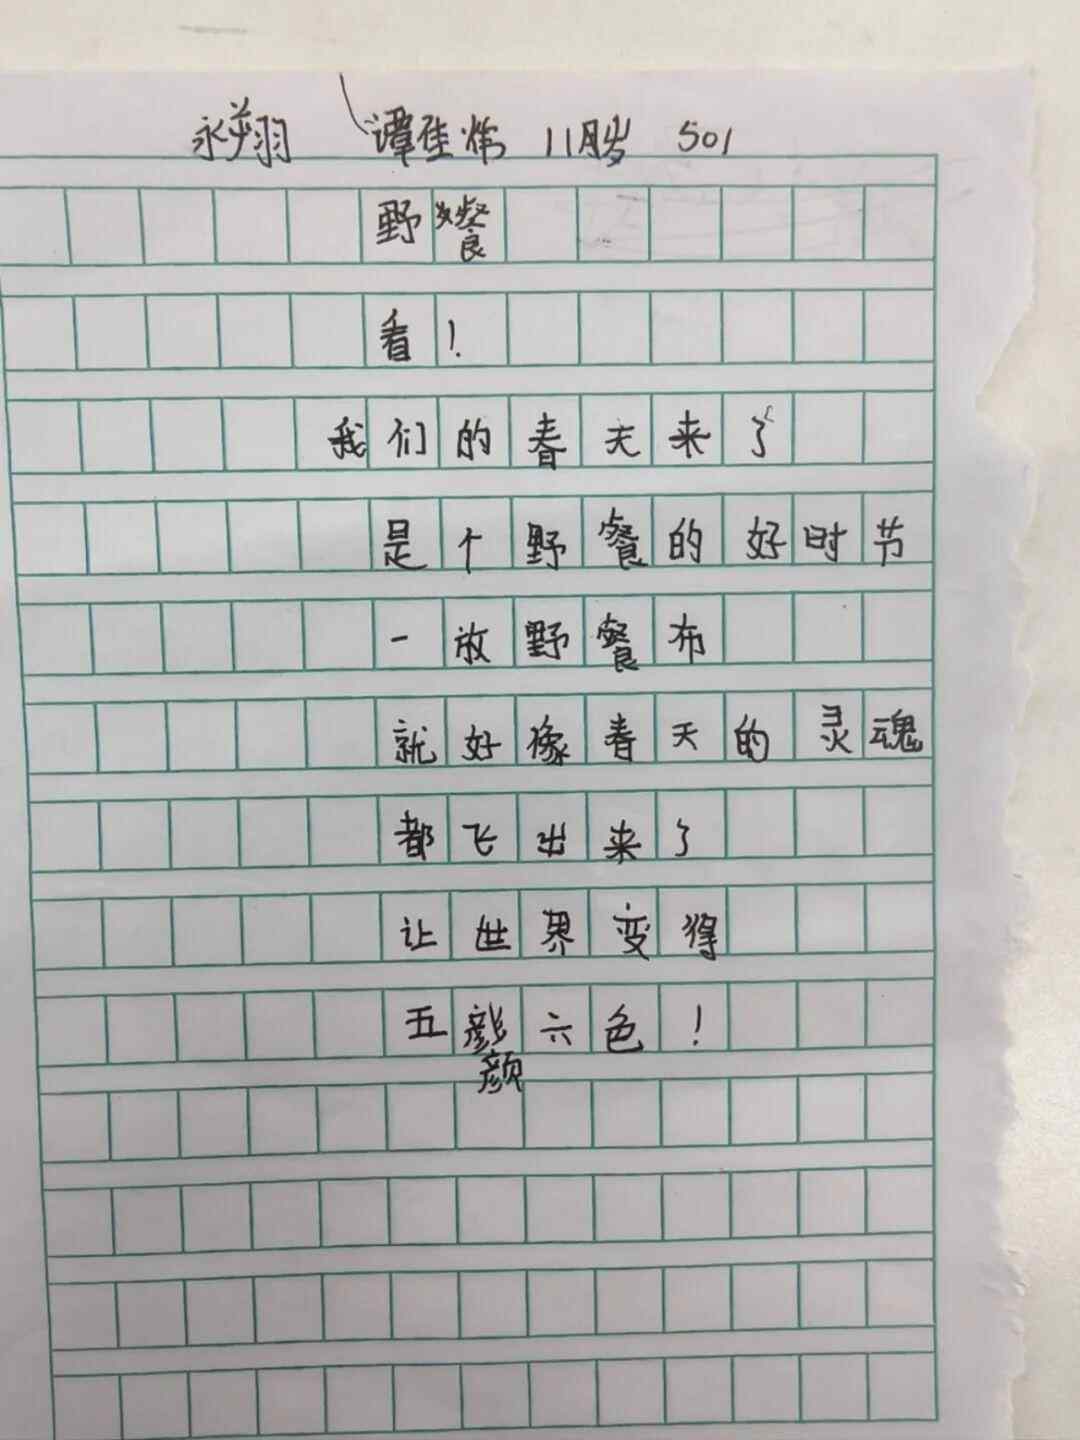 永翔 谭佳炜 11岁 501
野餐
看！
我们的春天来了
是个野餐的好时节
一放野餐布
就好像春天的灵魂
都飞出来了
让世界变得
五颜六色！
颜